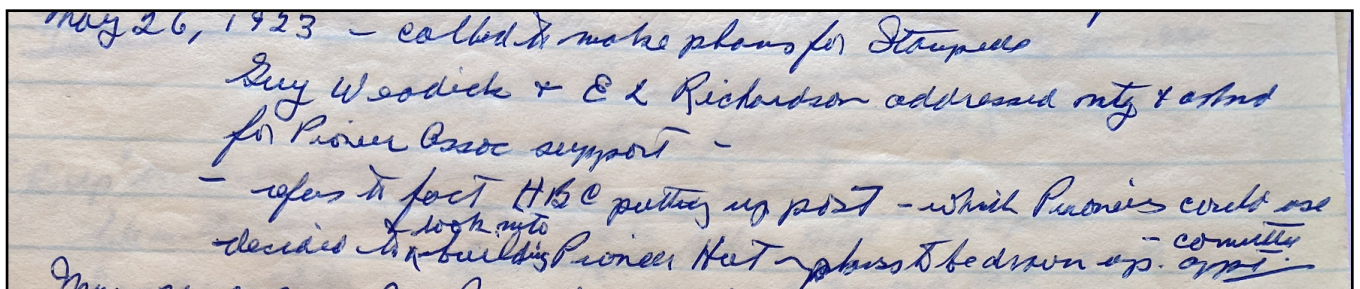 May 26, 1923 - called to make plans for Stampede
Guy Weadick + E L Richardson addressed mtg & asked
for Pioneer Assoc support -
- refers to fact HBC putting up post - which Pioneers could use
decided to look into building Pioneer Hut - plans to be drawn up. - committee appt.